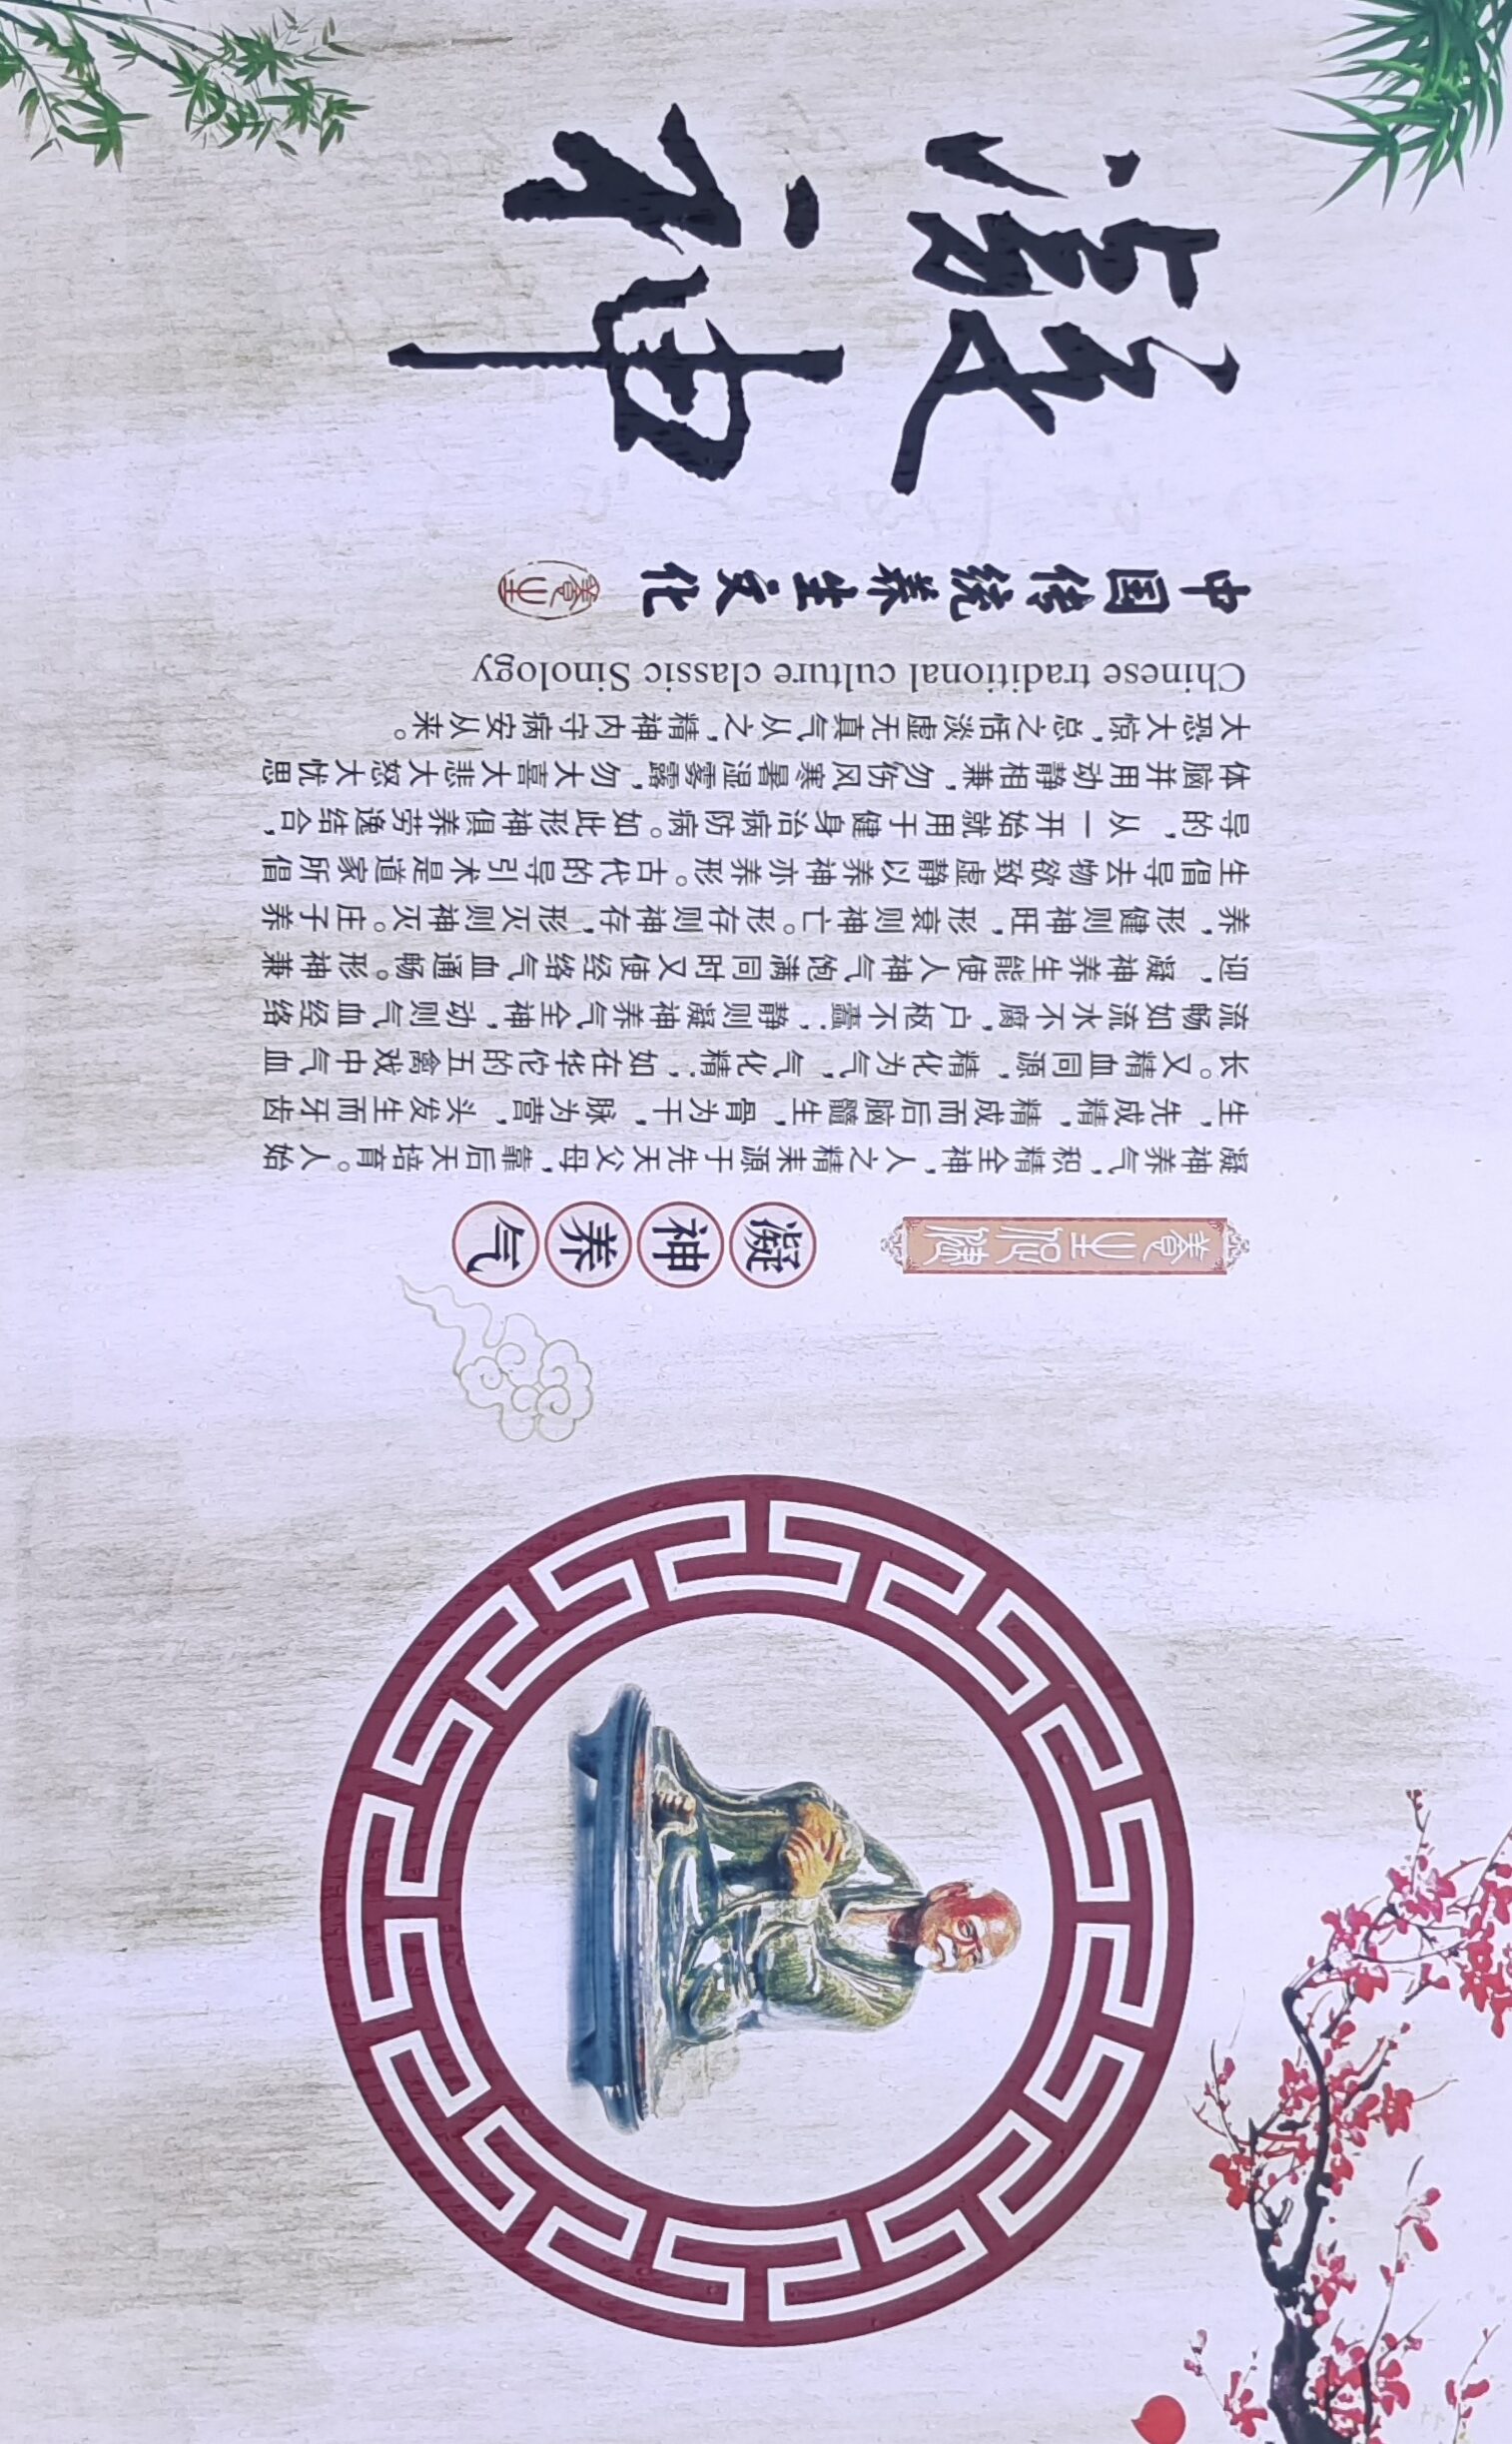 凝神
中国传统养生文化
養生
Chinese traditional culture classic Sinology
凝神养气
凝神养气,积精全神,人之精来源于先天父母,靠后天培育。人始
生,先成精,精成而后脑髓生,骨为干,脉为营,头发生而牙齿
长。又精血同源,精化为气,气化精.,如在华佗的五禽戏中气血
流畅如流水不腐,户枢不蠹.,静则凝神养气全神,动则气血经络
迎,凝神养生能使人神气饱满同时又使经络气血通畅。形神兼
养,形健则神旺,形衰则神亡。形存则神存,形灭则神灭。庄子养
生倡导去物欲致虚静以养神亦养形。古代的导引术是道家所倡
导的,从一开始就用于健身治病防病。如此形神俱养劳逸结合,
体脑并用动静相兼,勿伤风寒暑湿雾露,勿大喜大悲大怒大忧思
大恐大惊,总之恬淡虚无真气从之,精神内守病安从来。